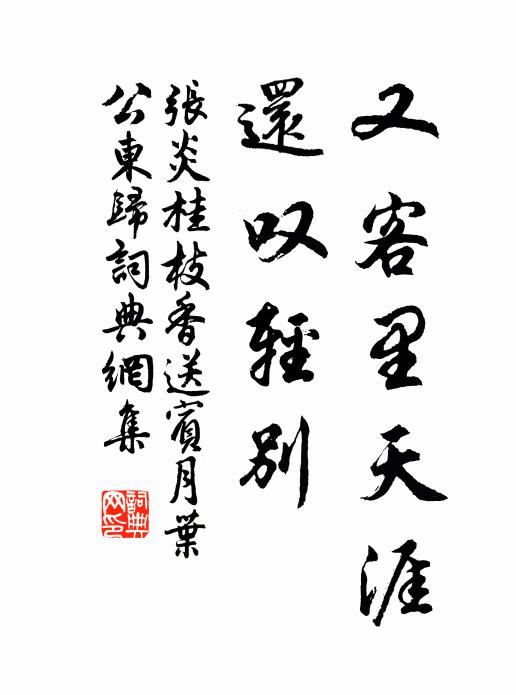 又客里天涯
還叹輕別
張炎桂枝香送賓月葉
公東歸詞典網集
詞典网印